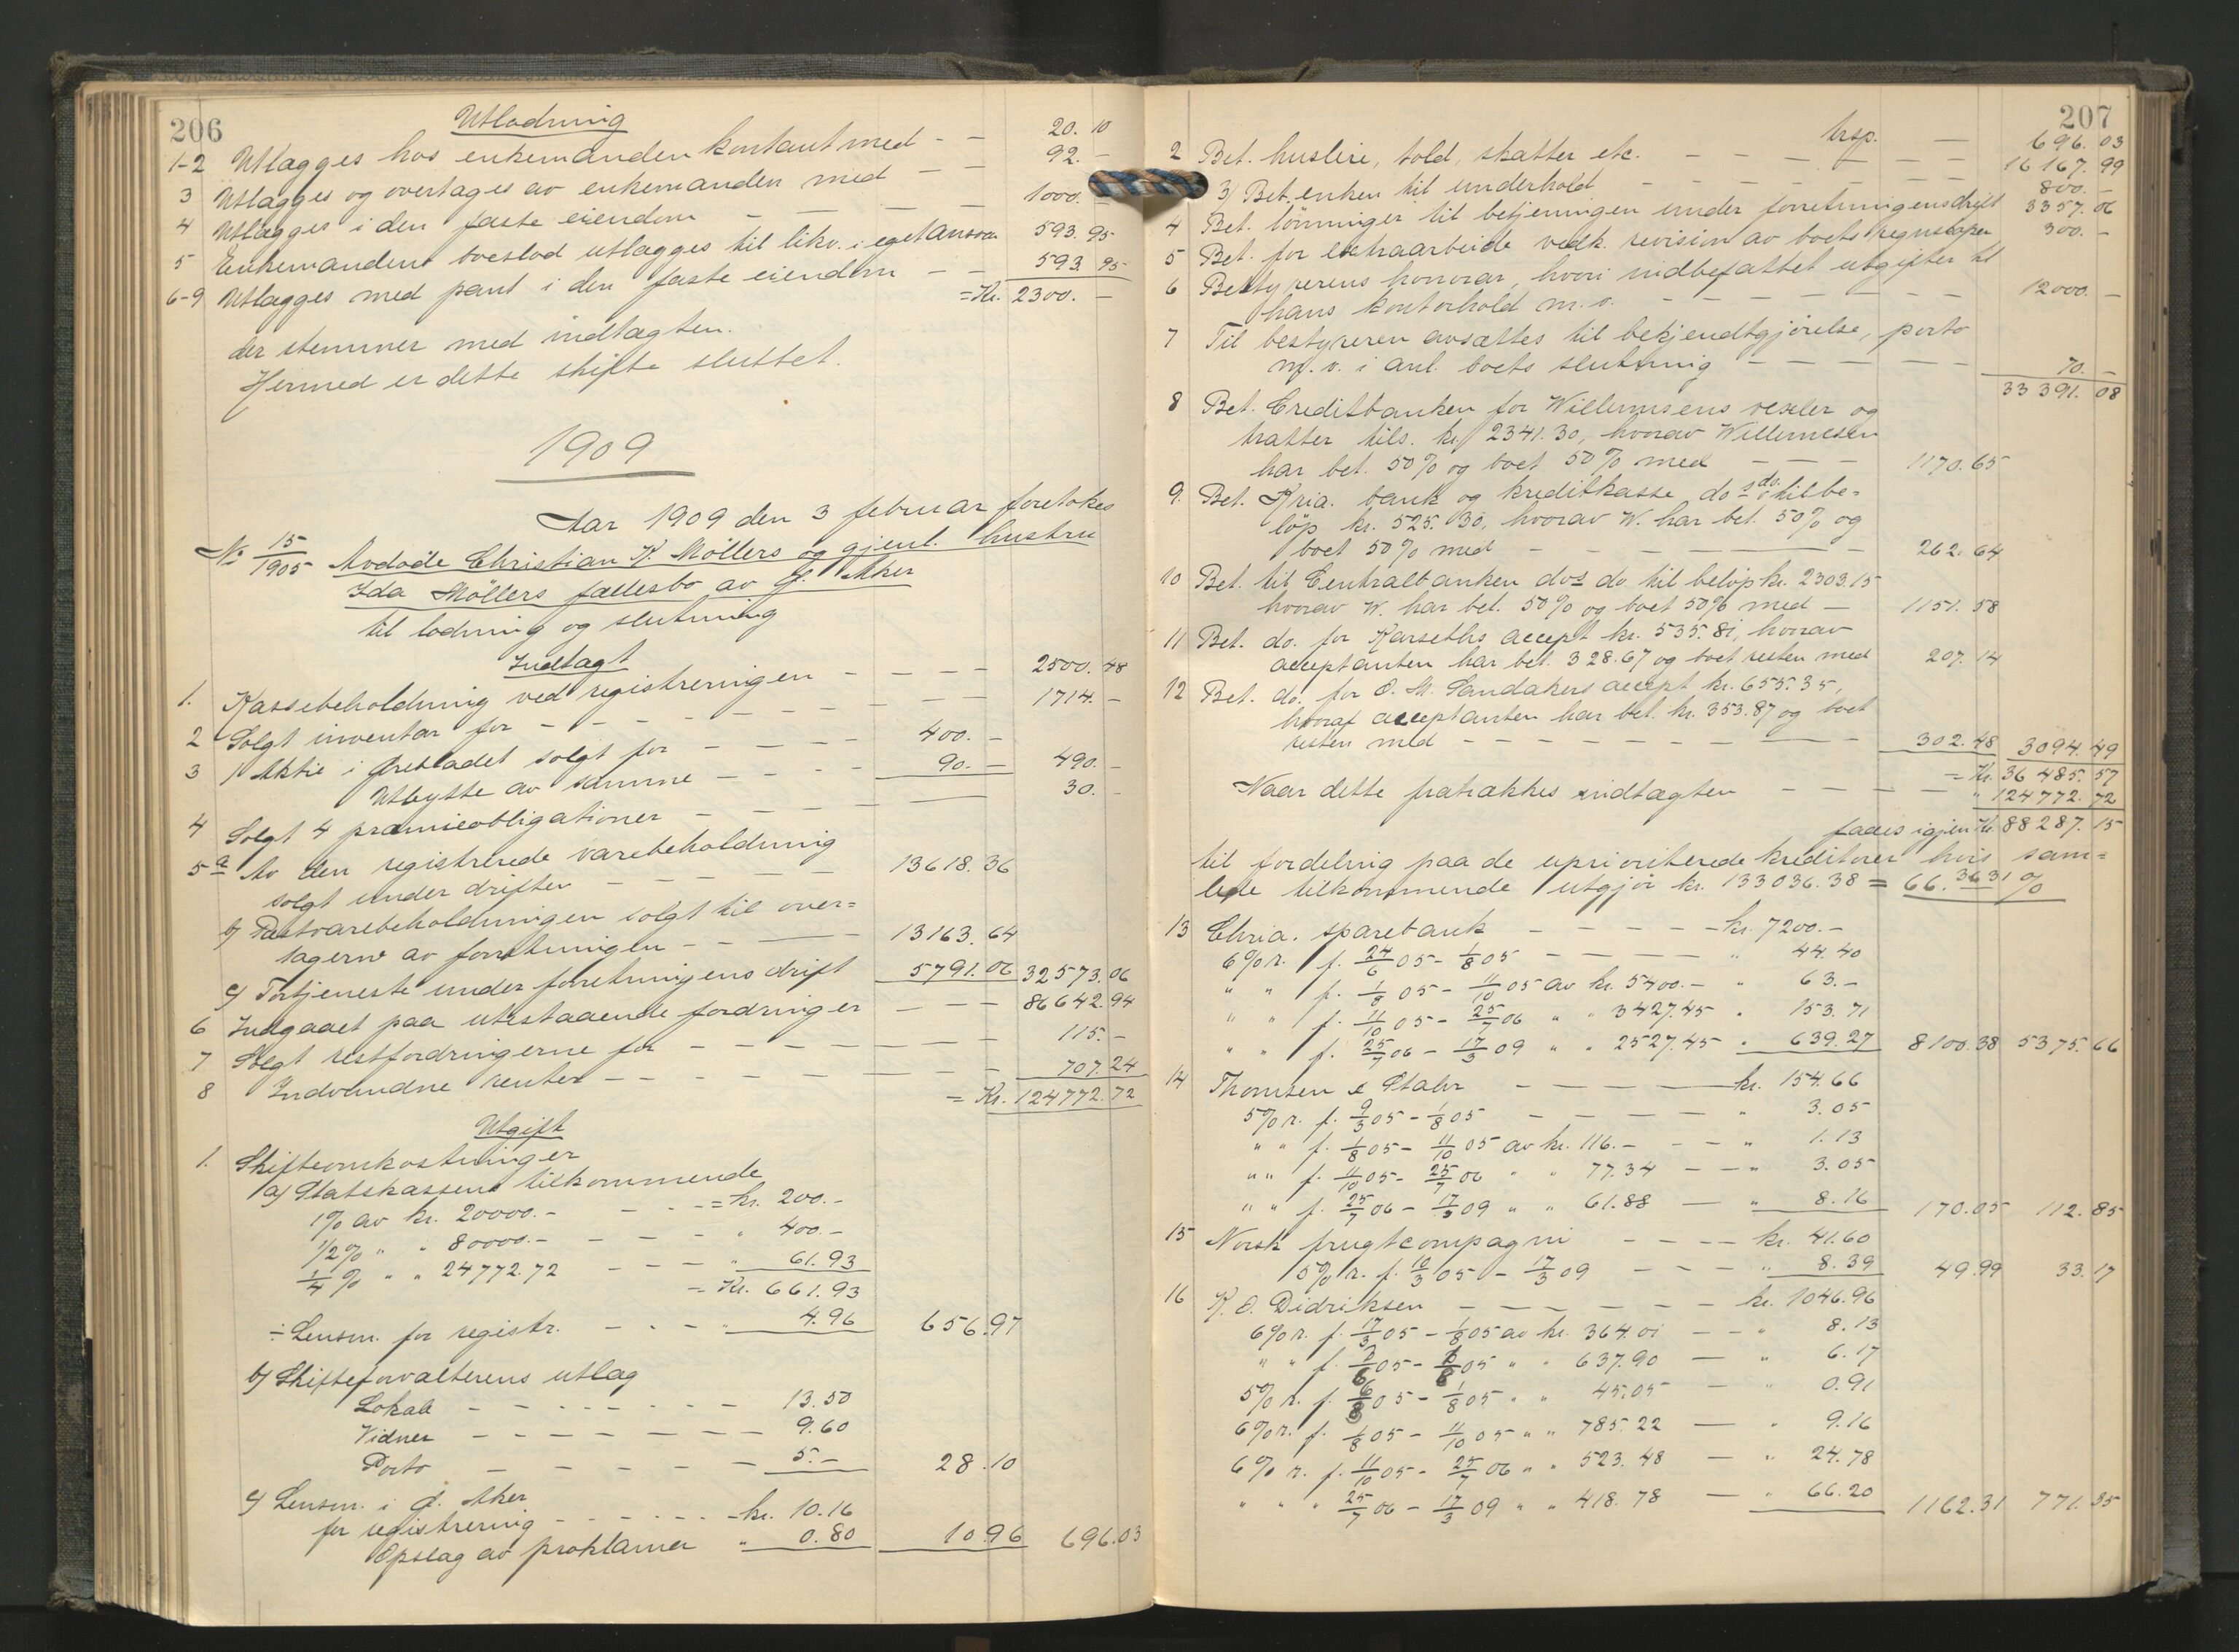 206
Utlodning
1-2 Utlægges hos enkemanden kontant med - - 20. 10
3 Utlægges og overtages av enkemanden med - - 92. -
4 Utlægges i den faste eiendom - - - - 1000. -
5 Enkemandens boeslod utlægges til likv. i eget ansvar 593. 95
6-9 Utlægges med pant i den faste eiendom - - 593. 95
= Kr. 2300. -
der stemmer med indtægten.
Hermed er dette skifte sluttet.
1909
Aar 1909 den 3 februar foretokes
No 15/1905 Avdøde Christian K. Møllers og gjenl. hustru
Ida Møllers fællesbo av Ø. Aker
til lodning og slutning
Indtægt
1. Kassebeholdning ved registreringen - - - - 2500. 48
2 Solgt inventar for - - - - - - - - 1714. -
3 1 Aktie i Ørebladet solgt for - - - - 400. -
Utbytte av samme - - - - 90. - 490. -
4 Solgt 4 præmieobligationer - - - - 30. -
5 a Av den registrerede varebeholdning
solgt under driften - - - - - 13618. 36
b) Restvarebeholdningen solgt til over=
tagerne av forretningen - - - 13163. 64
c) Fortjeneste under forretningens drift 5791. 06 32573. 06
6 Indgaaet paa utestaaende fordringer - - - 86642. 94
7 Solgt restfordringerne for - - - - - - - 115. -
8 Indvundne renter - - - - - - - - - 707. 24
= Kr. 124772. 72
Utgift
1. Skifteomkostninger
a) Statskassens tilkommende
1% av kr. 20000. - - - = kr. 200. -
1/2% " " 80000. - - - - - " 400. -
1/4 % " " 24772. 72 - - - " 61. 93
= Kr. 661. 93
÷ Lensm. for registr. - - - " 4. 96 656. 97
b) Skifteforvalterens utlag
Lokale - - - - - - - - 13. 50
Vidner - - - - - - - 9. 60
Porto - - - - - - 5. - 28. 10
c) Lensm. i Ø. Aker
for registrering - - - - - - kr. 10. 16
Opslag av proklamer " 0. 80 10. 96 696. 03
207
trsp. - 696. 03
2 Bet. husleie, told, skatter etc. - - - - - - - 16167. 99
3) Bet. enken til underhold - - - - - - - 800. -
4 Bet. lønninger til betjeningen under forretningens drift 3357. 06
5 Bet. for ekstraarbeide vedk. revision av boets regnskaper 300. -
6 Bestyrerens honorar, hvori indbefattet utgifter til
hans kontorhold m. v. - - - - - - - 12000. -
7 Til bestyreren avsættes til bekjendtgjørelse, porto
m. v. i anl. boets slutning - - - - - 70. -
33391. 08
8 Bet. Creditbanken for Willumsens veksler og
tratter tils. kr. 2341. 30, hvorav Willumsen
har bet. 50% og boet 50% med - - - 1170. 65
9. Bet. Kria. bank og kreditkasse dos do. til be=
løp kr. 525. 30, hvorav W. har bet. 50% og
boet 50% med - - - - - - - 262. 64
10 Bet. til Centralbanken dos do til beløp kr. 2303. 15
hvorav W. har bet. 50% og boet 50% med - 1151. 58
11 Bet. do. for Karseths accept kr. 535. 81, hvorav
acceptanten har bet. 328. 67 og boet resten med 207. 14
12 Bet. do. for O. M. Sandakers accept kr. 655. 35,
hvoraf acceptanten har bet. kr. 353. 87 og boet
resten med - - - - - - - - - 302. 48 3094. 49
= Kr. 36485. 57
Naar dette fratrækkes indtægten - - - - " 124772. 72
faaes igjen Kr. 88287. 15
til fordeling paa de uprioriterede kreditorer hvis sam=
lede tilkommende utgjør kr. 133036. 38 = 66. 3631 %
13 Chria. sparebank - - - - - kr. 7200. -
6% r. f. 24/6 05 - 1/8 05 - - - - - " 44. 40
" " f. 1/8 05 - 11/10 05 av kr. 5400. - " 63. -
" " f. 11/10 05 - 25/7 06 " " 3427. 45 " 153. 71
" " f. 25/7 06 - 17/3 09 " " 2527. 45 " 639. 27 8100. 38 5375. 66
14 Thomsen & Stahr - - - - kr. 154. 66
5% r. f. 9/3 05 - 1/8 05 - - - - - " 3. 05
" " f. 1/8 05 - 11/10 05 av kr. 116. - - - " 1. 13
" " f. 11/10 05 - 25/7 06 " " 77. 34 - - " 3. 05
" " f. 25/7 06 - 17/3 09 " " 61. 88 - " 8. 16 170. 05 112. 85
15 Norsk frugtcompagni - - - - kr. 41. 60
5% r. f. 10/3 05 - 17/3 09 - - - " 8. 39 49. 99 33. 17
16 K. O. Didriksen - - - - - - kr. 1046. 96
6% r. f. 17/3 05 - 1/8 05 av kr. 364. 01 - - " 8. 13
" " f. 05 - 05 " " 637. 90 - " 6. 17
5% r. f. 05 - 1/8 05 " " 45. 05 - " 0. 91
6% r. f. 1/8 05 - 11/10 05 " " 785. 22 - " 9. 16
6% r. f. 11/10 05 - 25/7 06 " " 523. 48 - " 24. 78
" " " 25/7 06 - 17/3 09 " " 418. 78 - " 66. 20 1162. 31 771. 35